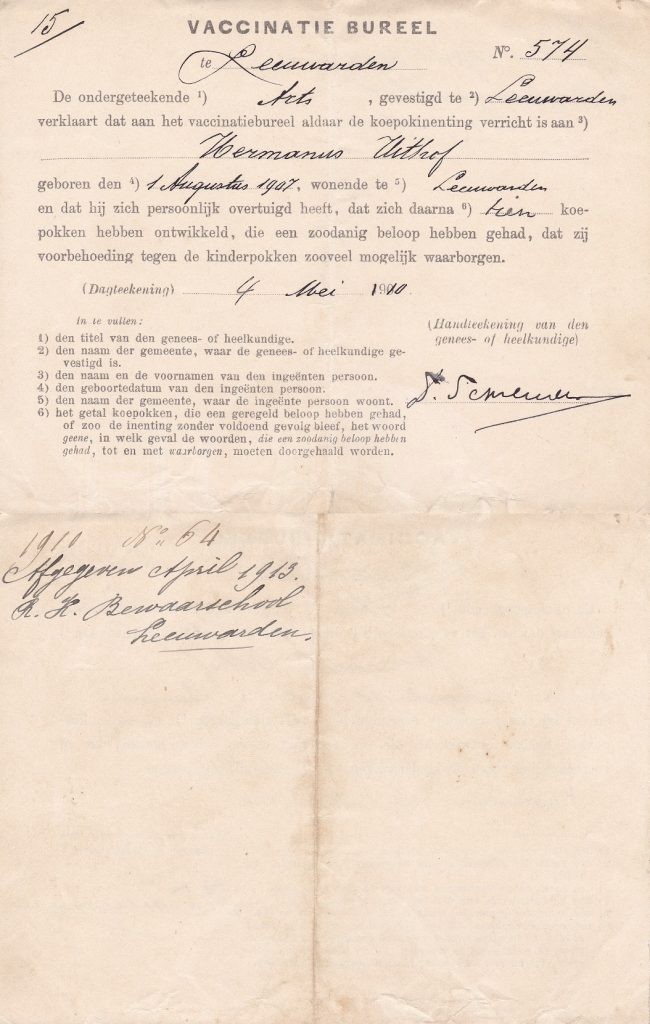 15
VACCINATIE BUREEL
te Leeuwarden No. 574
De ondergeteekende 1) Arts , gevestigd te 2) Leeuwarden
verklaart dat aan het vaccinatiebureel aldaar de koepokinenting verricht is aan 3)
Hermanus Uithof
geboren den 4) 1 Augustus 1907, wonende te 5) Leeuwarden
en dat hij zich persoonlijk overtuigd heeft, dat zich daarna 6) tien koe-
pokken hebben ontwikkeld, die een zoodanig beloop hebben gehad, dat zij
voorbehoeding tegen de kinderpokken zooveel mogelijk waarborgen.
(Dagteekening) 4 Mei 1910
In te vullen:
1) den titel van den genees- of heelkundige.
2) den naam der gemeente, waar de genees- of heelkundige ge-
vestigd is.
3) den naam en de voornamen van den ingeënten persoon.
4) den geboortedatum van den ingeënten persoon.
5) den naam der gemeente, waar de ingeënte persoon woont.
6) het getal koepokken, die een geregeld beloop hebben gehad,
of zoo de inenting zonder voldoend gevolg bleef, het woord
geene, in welk geval de woorden, die een zoodanig beloop hebben
gehad, tot en met waarborgen, moeten doorgehaald worden.
(Handteekening van den
genees- of heelkundige)
1910 No 64
Afgegeven April 1913.
R. K. Bewaarschool
Leeuwarden.